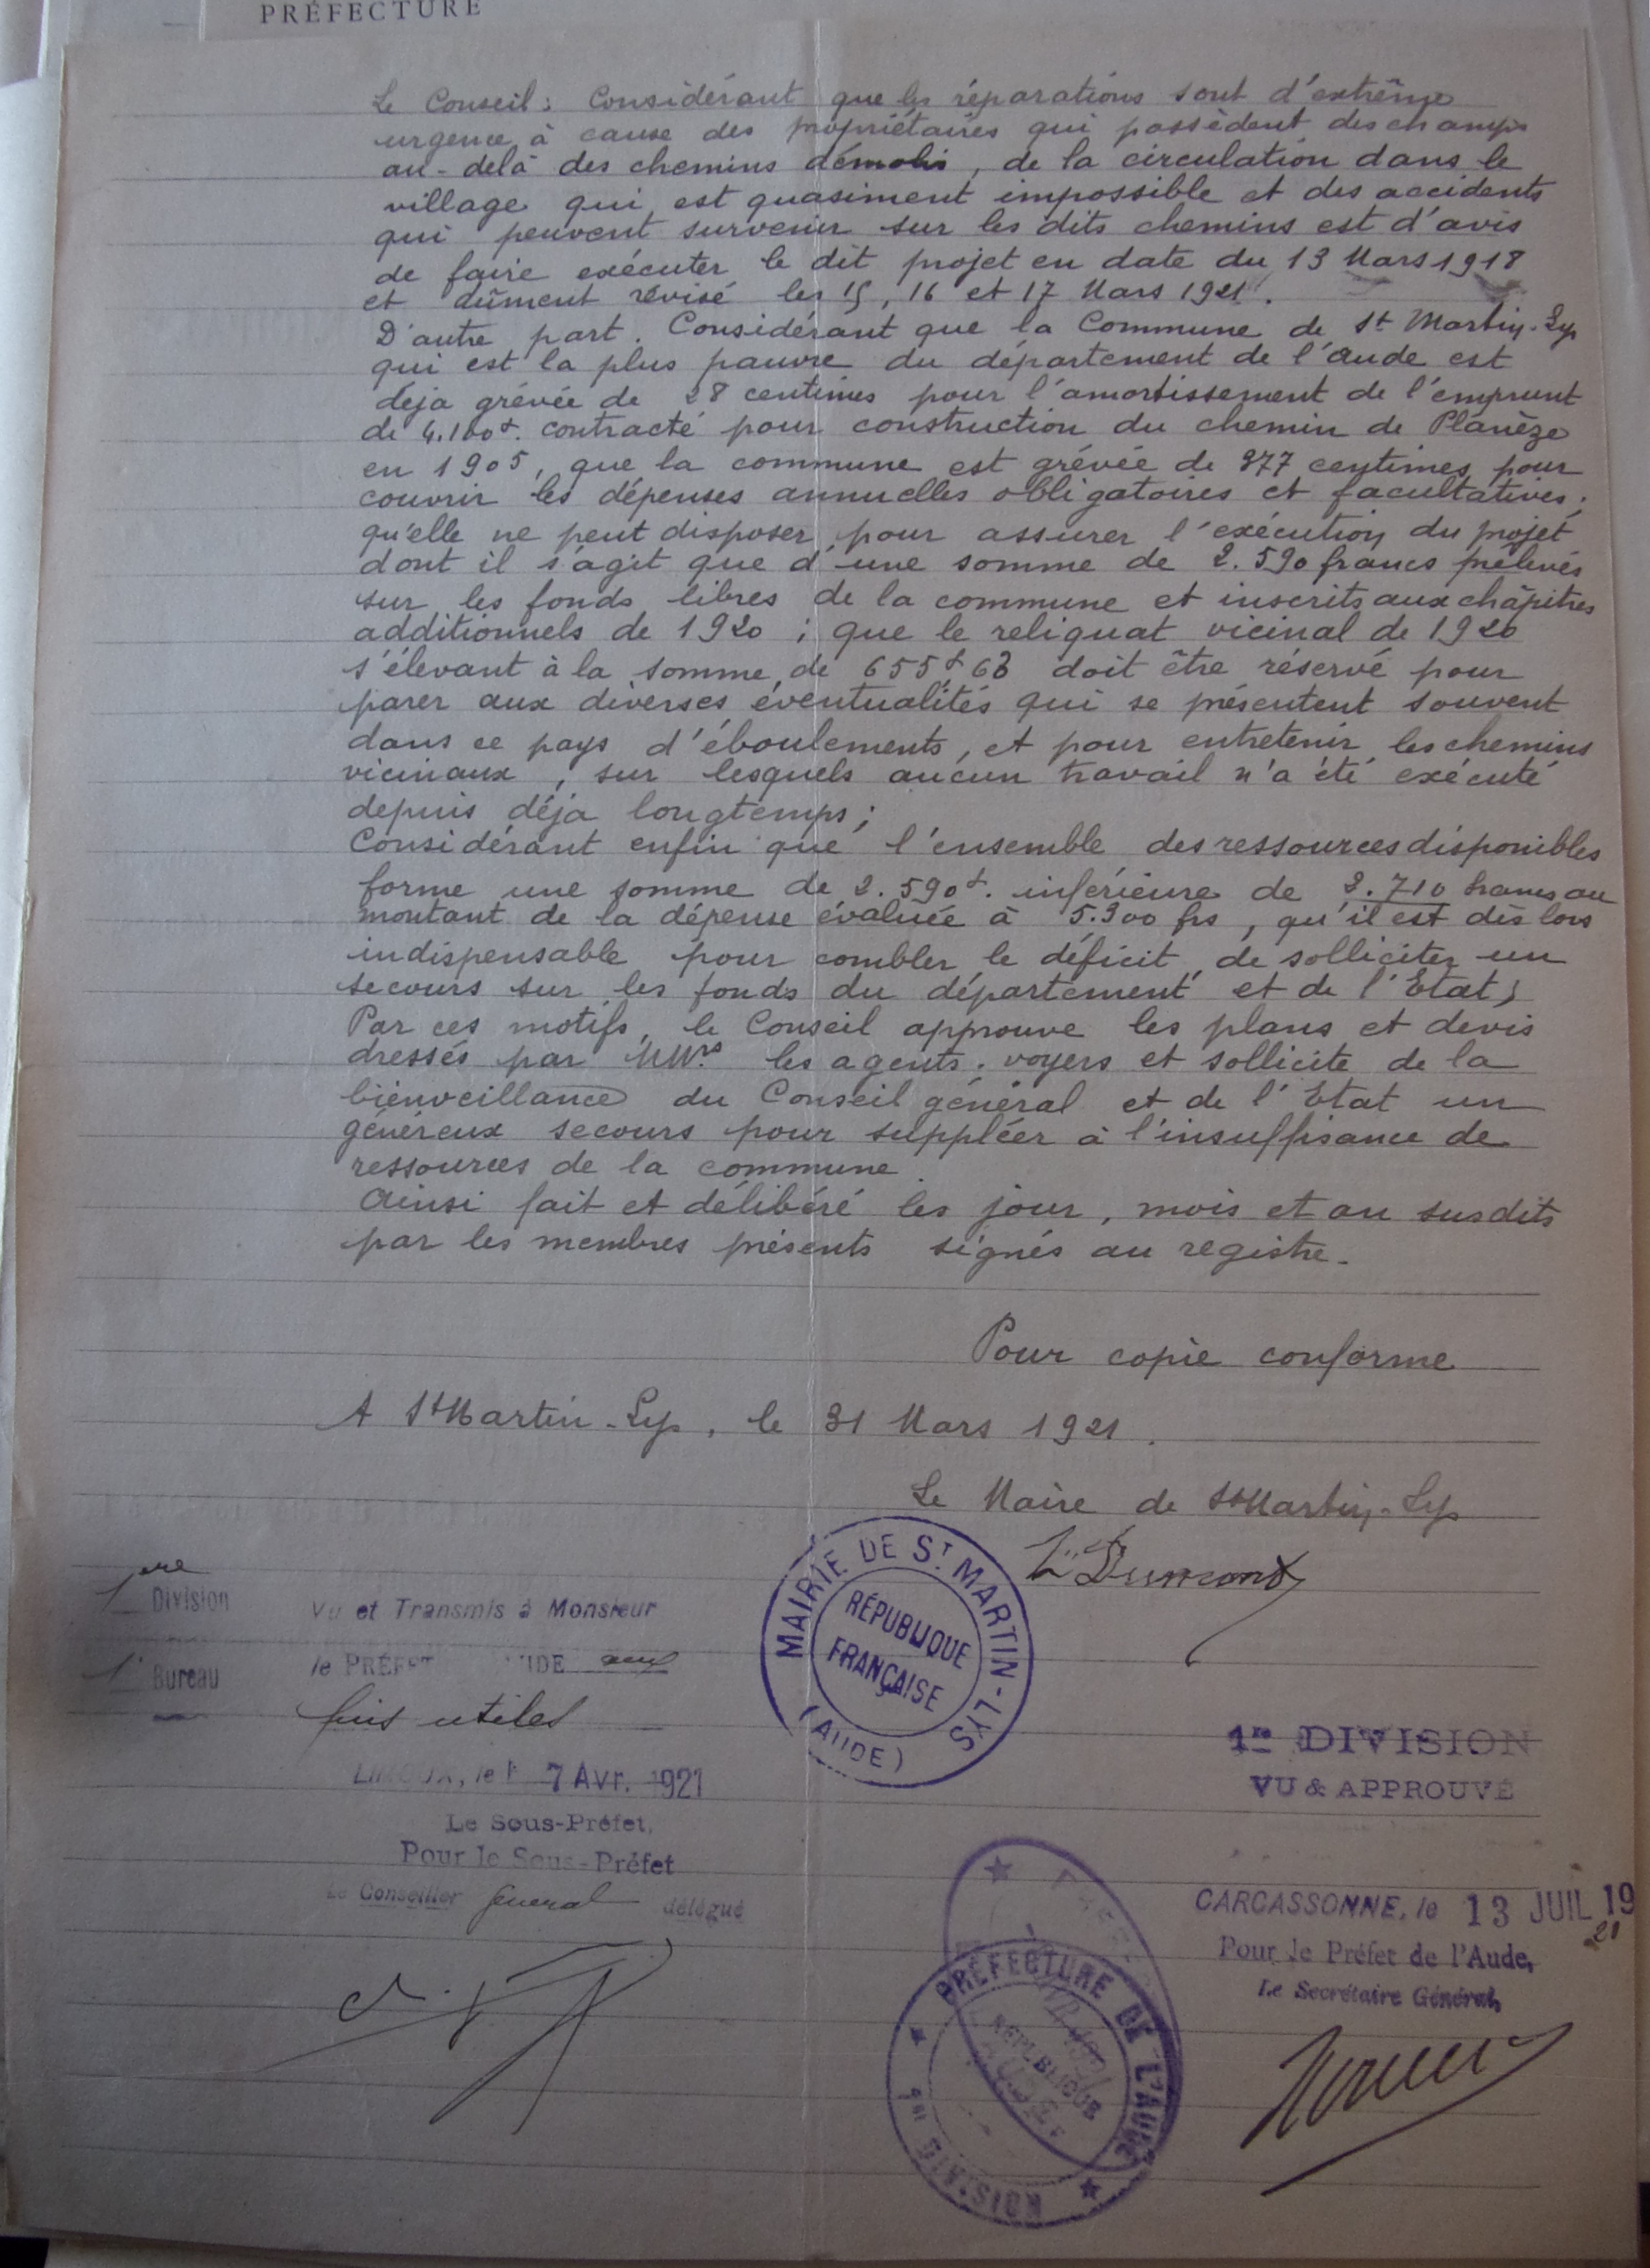 PRÉFECTURE
Le Conseil : Considérant que les réparations sont d'extrême
urgence à cause des propriétaires qui possèdent des champs
au-delà des chemins démolis, de la circulation dans le
village qui est quasiment impossible et des accidents
qui peuvent survenir sur les dits chemins est d'avis
de faire exécuter le dit projet en date du 13 Mars 1918
et dûment révisé les 15, 16 et 17 Mars 1921.
D'autre part. Considérant que la Commune de St Martin-Lys
qui est la plus pauvre du département de l'Aude est
déja grévée de 28 centimes pour l'amortissement de l'emprunt
de 4.100f. contracté pour construction du chemin de Planèze
en 1905, que la commune est grévée de 377 centimes pour
couvrir les dépenses annuelles obligatoires et facultatives;
qu'elle ne peut disposer pour assurer l'exécution du projet
dont il s'agit que d'une somme de 2.590 francs prélevés
sur les fonds libres de la commune et inscrits aux châpitres
additionnels de 1920 ; que le reliquat vicinal de 1920
s'élevant à la somme de 655f 63 doit être réservé pour
parer aux diverses éventualités qui se présentent souvent
dans ce pays d'éboulements, et pour entretenir les chemins
vicinaux, sur lesquels aucun travail n'a été exécuté
depuis déja longtemps;
Considérant enfin que l'ensemble des ressources disponibles
forme une somme de 2.590f. inférieure de 2.710 francs au
montant de la dépense évaluée à 5.300 frs, qu'il est dès lors
indispensable pour combler le déficit, de solliciter un
secours sur les fonds du département et de l'Etat;
Par ces motifs, le Conseil approuve les plans et devis
dressés par MMrs les agents-voyers et sollicite de la
bienveillance du Conseil général et de l'Etat un
généreux secours pour suppléer à l'insuffisance de
ressources de la commune.
Ainsi fait et délibéré les jour, mois et an susdits
par les membres présents signés au registre.
Pour copie conforme
A St Martin-Lys, le 31 Mars 1921.
Le Maire de St Martin-Lys
Dumont
MAIRIE DE ST MARTIN-LYS
(AUDE)
RÉPUBLIQUE
FRANÇAISE
1ere Division
1er Bureau
Vu et Transmis à Monsieur
le PRÉFET AUDE aux
fins utiles
LIMOUX, le 7 Avr. 1921
Le Sous-Préfet,
Pour le Sous-Préfet
Le Conseiller général délégué
1re DIVISION
VU & APPROUVÉ
CARCASSONNE, le 13 JUIL 19
21
Pour le Préfet de l'Aude,
Le Secrétaire Général,
PRÉFECTURE DE L'AUDE
RÉPUBLIQUE
DIVISION